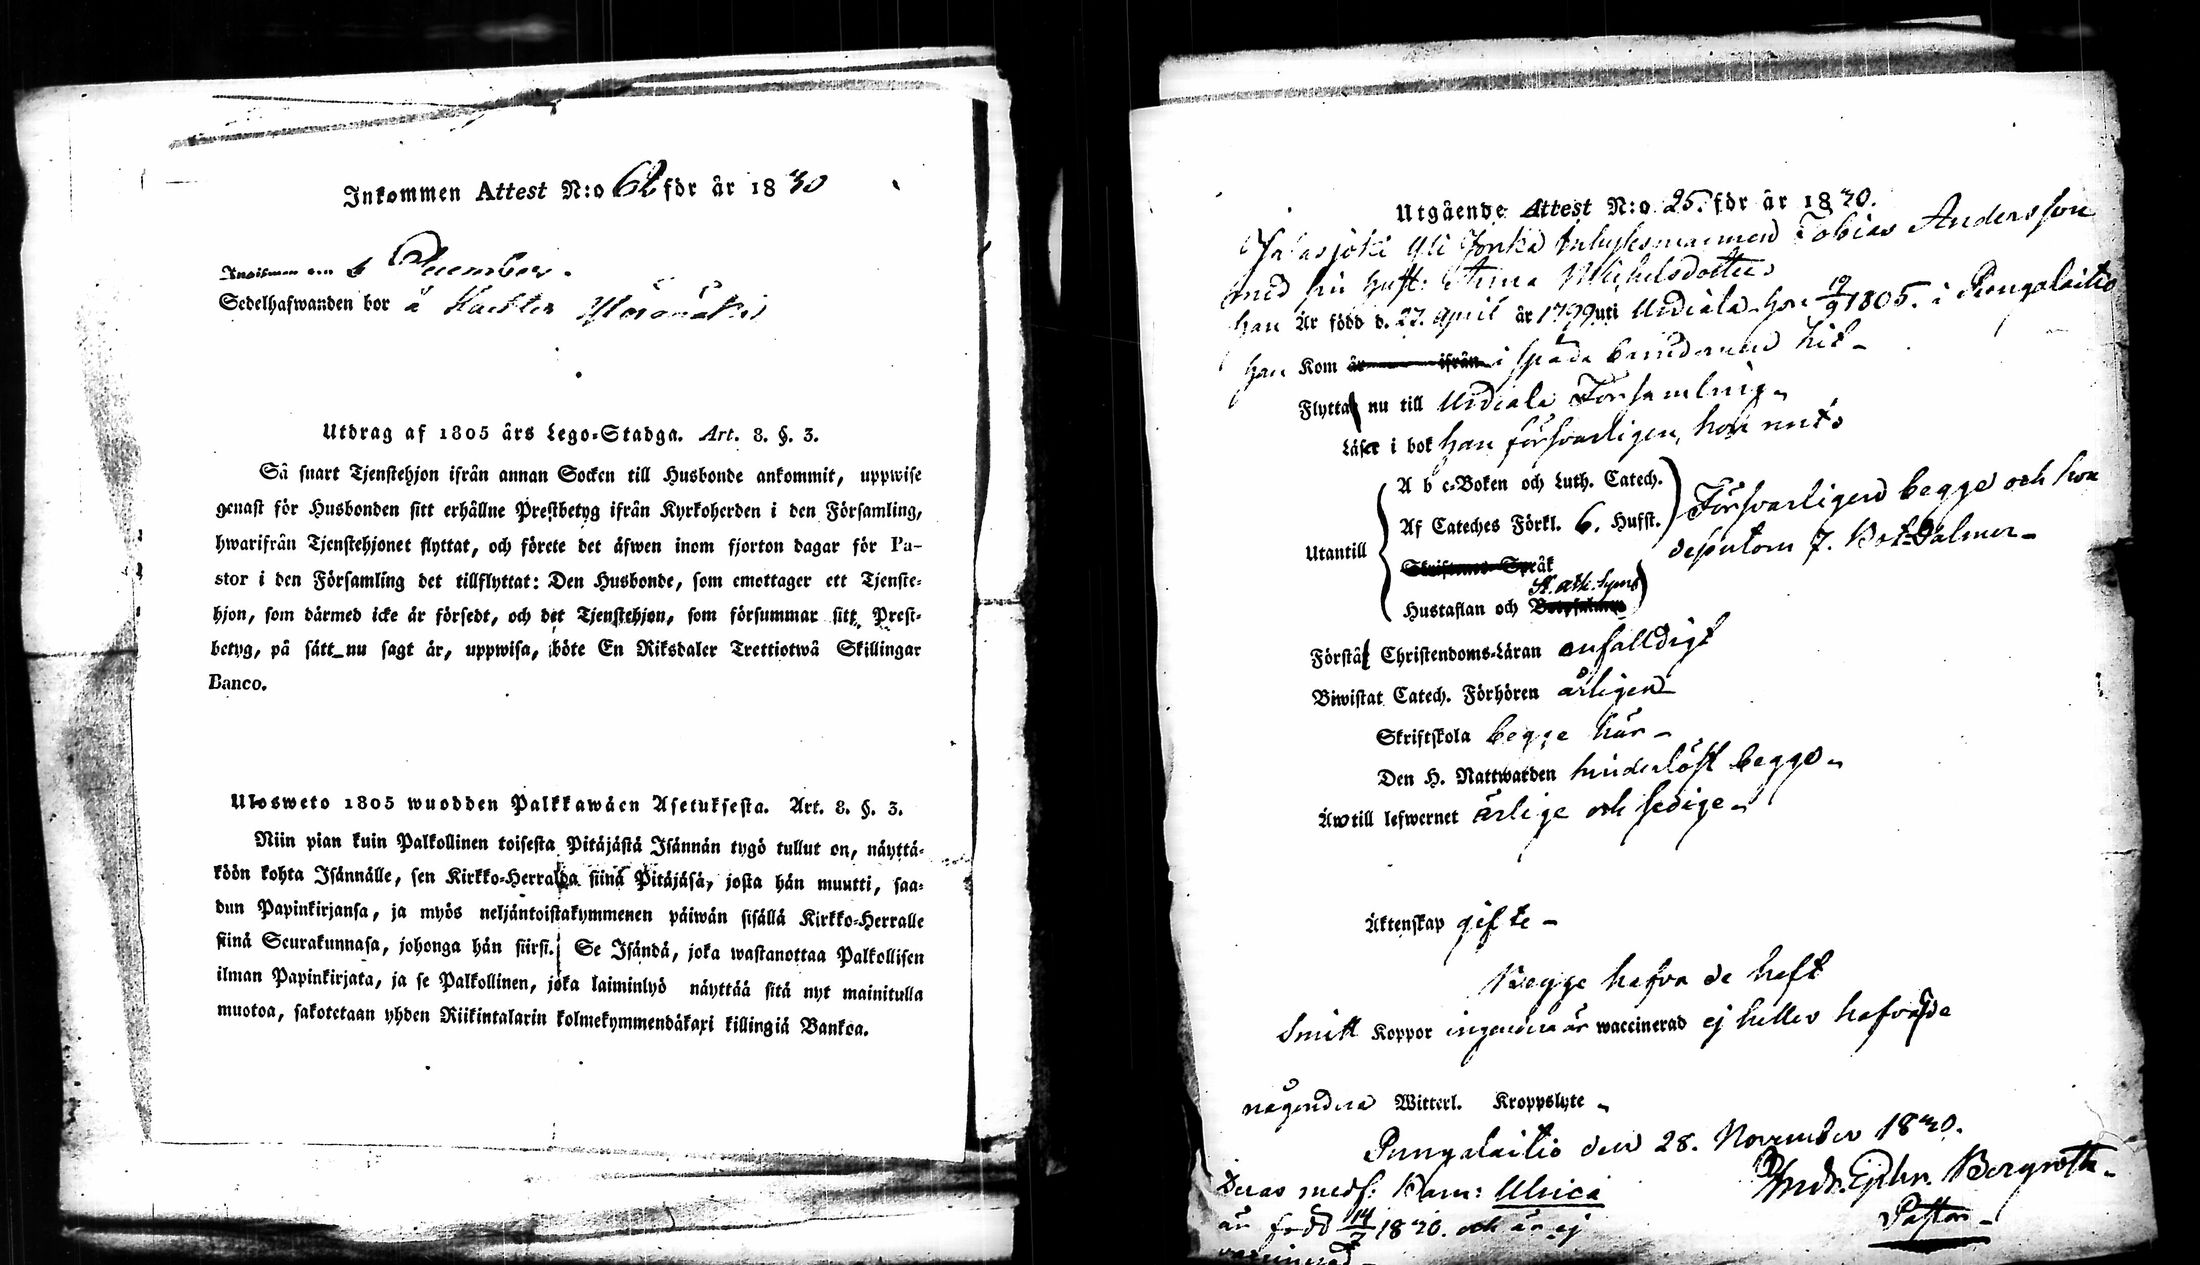 Inkommen Attest N:o 62 för år 1830
6 December.
Sedelhafwanden bor å Ylönäkki
Utdrag af 1805 års Lego-Stadga. Art. 8. §. 3.
Så snart Tjenstehjon ifrån annan Socken till Husbonde ankommit, uppwise
genast för Husbonden sitt erhållne Prestbetyg ifrån Kyrkoherden i den Församling,
hwarifrån Tjenstehjonet flyttat, och förete det äfwen inom fjorton dagar för Pa-
stor i den Församling det tillflyttat: Den Husbonde, som emottager ett Tjenste-
hjon, som därmed icke är försedt, och det Tjenstehjon, som försummar sitt Prest-
betyg, på sätt nu sagt är, uppwisa, böte En Riksdaler Trettiotwå Skillingar
Banco.
Ulosweto 1805 wuodden Palkkawäen Asetuksesta. Art. 8. §. 3.
Niin pian kuin Palkollinen toisesta Pitäjästä Isännän tygö tullut on, näyttä-
köön kohta Isännälle, sen Kirkko-Herralda siinä Pitäjäsä, josta hän muutti, saa-
dun Papinkirjansa, ja myös neljäntoistakymmenen päiwän sisällä Kirkko-Herralle
siinä Seurakunnasa, johonga hän siirsi. Se Isändä, joka wastanottaa Palkollisen
ilman Papinkirjata, ja se Palkollinen, joka laiminlyö näyttää sitä nyt mainitulla
muotoa, sakotetaan yhden Riikintalarin kolmekymmendäkaxi killingiä Bankoa.
Utgående Attest N:o 25. för år 1830.
Inhyhesmannen Tobias Andersson
med sin hust: Anna Michelsdotter
han Är född d. 27. April år 1799 uti Urdiala hon 19/9 1805. i Pungalaitio
han Kom år ifrån i späda barndomen hit
Flytta nu till Urdiala Församling
Läser i bok han försvarligen, hon
A b c-Boken och Luth. Catech.
Af Cateches Förkl. 6. Hufst.
Försvarligen begge och hon
dessutom 7. Bot-Psalmer
Utantill
Skriftenes Språk
St. ath. Symb
Hustaflan och Botpsalmen
Förstå Christendoms-Läran enfalldigt
Biwistat Catech. Förhören årligen
Skriftskola begge här
Den H. Nattwarden hinderlöst begge
Äro till lefwernet ärlige och sedige
Äktenskap gifte
Begge hafva de haft
Smitt Koppor ingendera är waccinerad ej heller hafva de
någondera Witterl. Kroppslyte
Pungalaitio den 28. November 1830.
Andr. Ephr. Bergroth
Pastor
Deras medf: Barn: Ulrica
är född 14/7 1830. och är ej
vaccinerad